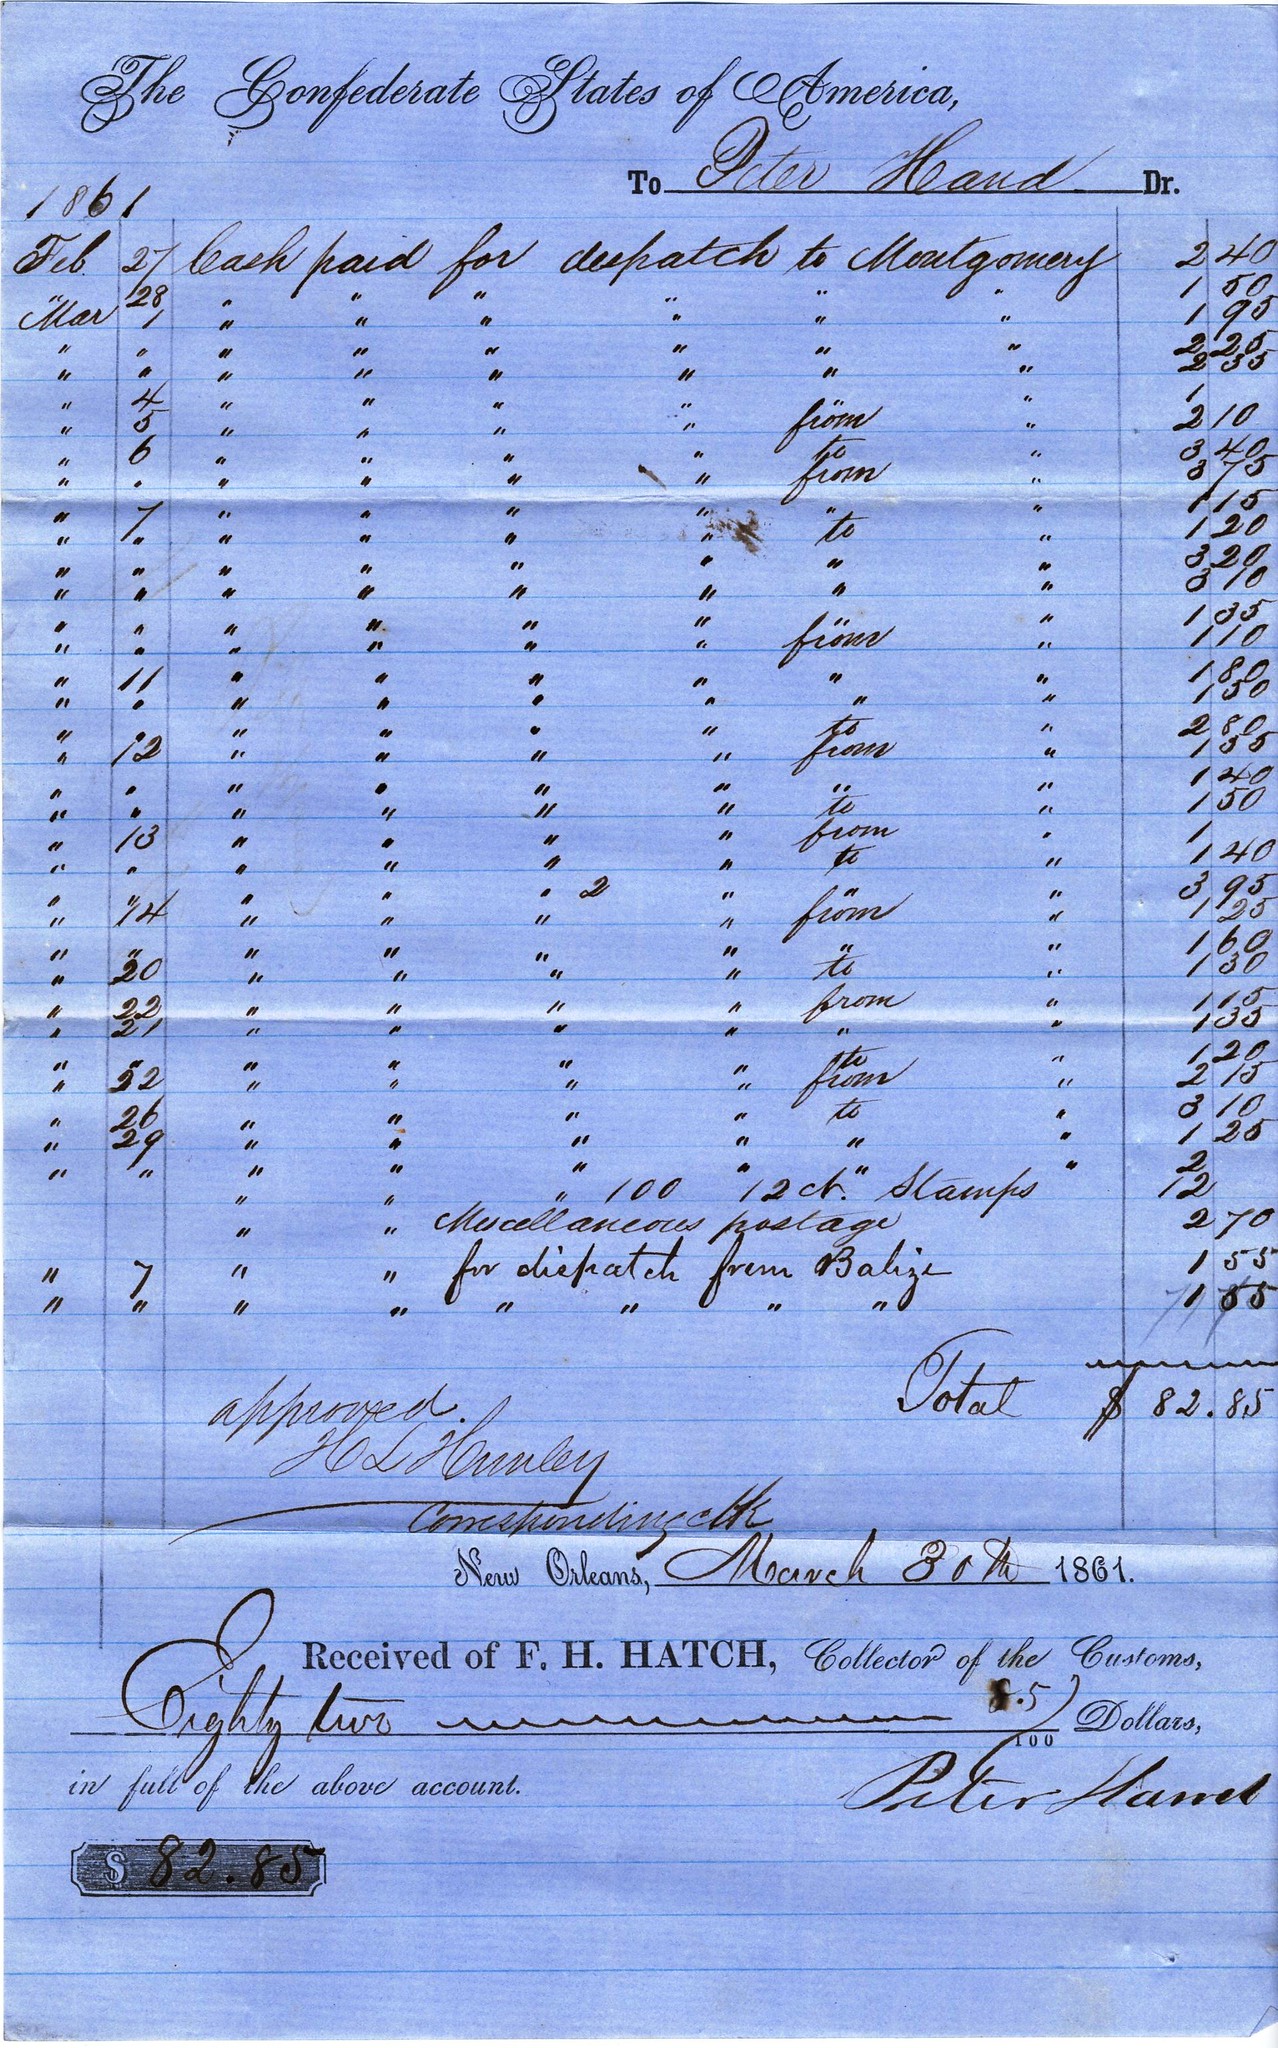 The Confederate States of America,
To Peter Hand Dr.
1861
Feb. 27 Cash paid for despatch to Montgomery 2 40
" 28 " " " " " " 1 50
Mar 1 " " " " " " 1 95
" " " " " " " " 2 25
" " " " " " " " 2 35
" 4 " " " " " " 1
" 5 " " " " from " 2 10
" 6 " " " " to " 3 40
" " " " " " from " 3 75
" 7 " " " " " " 1 15
" " " " " " to " 1 20
" " " " " " " " 3 20
" " " " " " " " 3 10
" " " " " " " " 1 35
" " " " " " from " 1 10
" 11 " " " " " " 1 80
" " " " " " " " 1 50
" " " " " " to " 2 80
" 12 " " " " from " 1 35
" " " " " " " " 1 40
" " " " " " to " 1 50
" 13 " " " " from " 1
" " " " " " to " 1 40
" " " " " 2 " " " 3 95
" 14 " " " " from " 1 25
" " " " " " " " 1 60
" 20 " " " " to " 1 30
" 22 " " " " from " 1 15
" 21 " " " " " " 1 35
" " " " " " to " 1 20
" 22 " " " " from " 2 15
" 26 " " " " to " 3 10
" 29 " " " " " " 1 25
" " " " " " " " 2
" " " 100 12 ct. Stamps 12
" " Miscellaneous postage 2 70
" 7 " " for dispatch from Balize 1 55
" " " " " " " " 1 55
Total $ 82.85
approved.
H L Hunley
Corresponding clk
New Orleans, March 30th 1861.
Received of F. H. HATCH, Collector of the Customs,
Eighty two 85/100 Dollars,
in full of the above account.
Peter Hand
$ 82.85